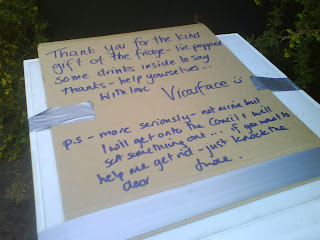 Thank you for the kind
gift of the fridge - Ive popped
some drinks inside to say
Thanks - help yourselves...
With love
p.s - more seriously - not mine but
I will get onto the Council & we'll
sort something out... if you want to
help me get rid - just knock the
door